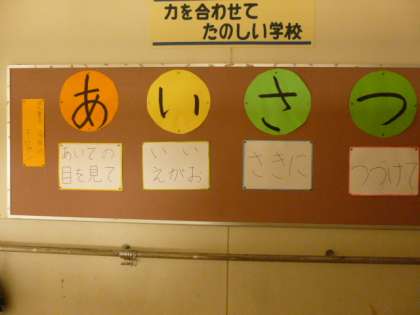 力を合わせて
たのしい学校
あいさつ
あいての
目を見て
いい
えがお
さきに
つづけて